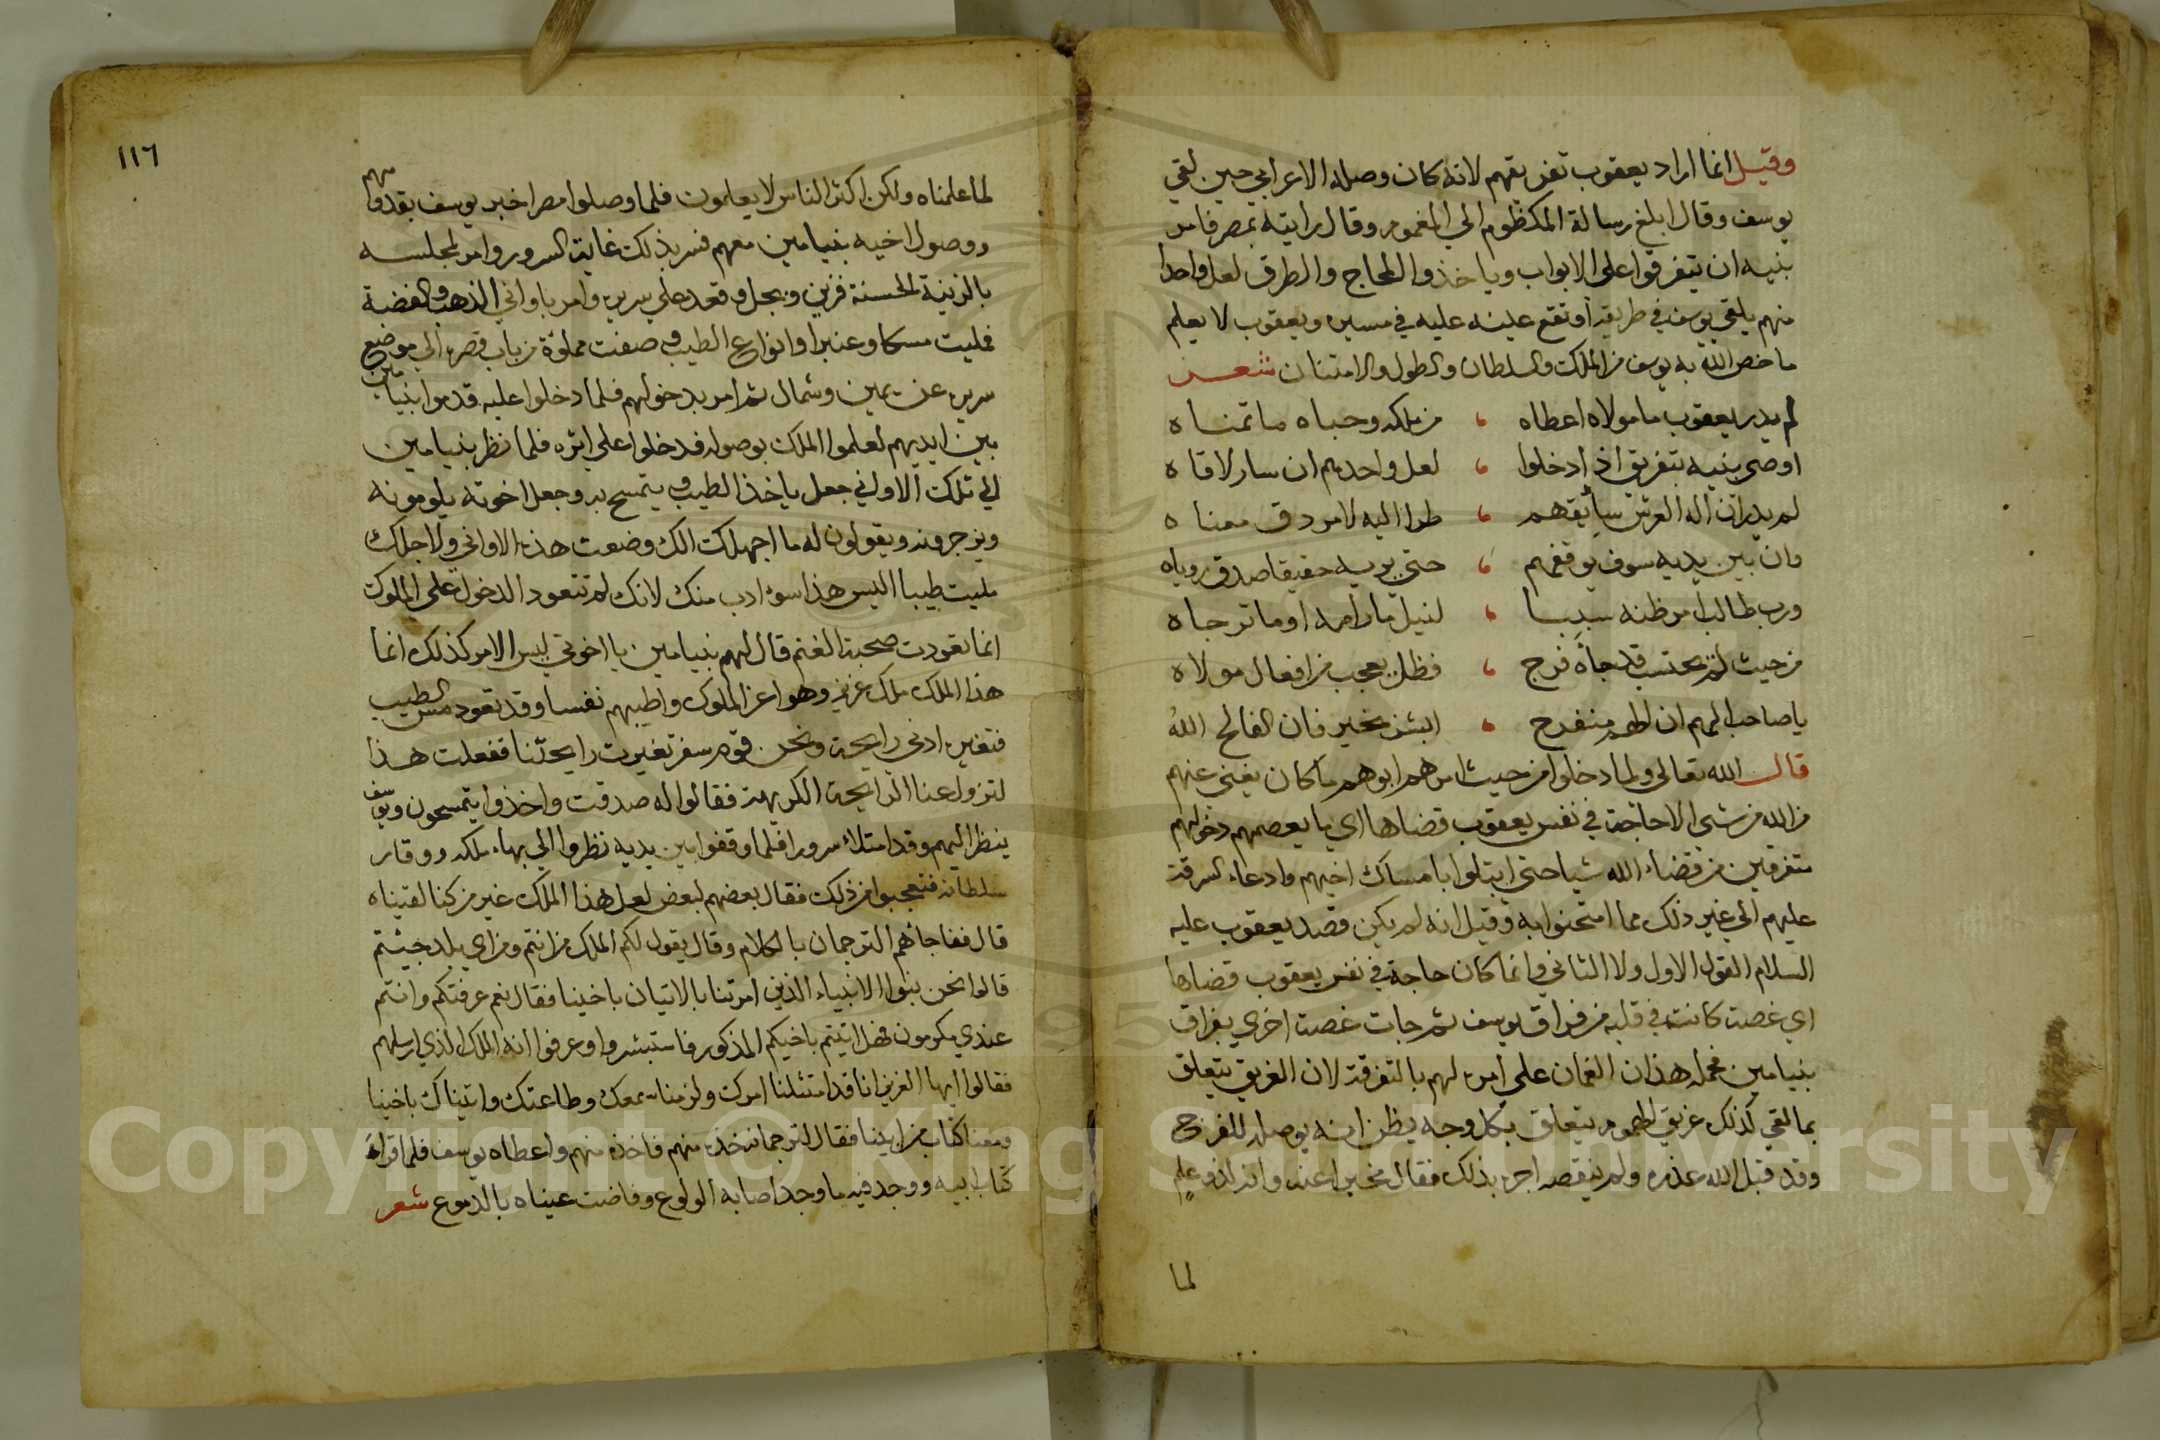 وقيل انما اراد يعقوب تفريقهم لانه كان وصله الاعرابي حين لقي
يوسف وقال ابلغ رسالة المكظوم الي المغموم وقال رايته بمصر فامر
بنيه ان يتفرقوا على الابواب وياخذوا المحاج والطرق لعل واحدا
منهم يلقي يوسف في طريقه او تقع عليه في مسيره ويعقوب لا يعلم
ما خص الله به يوسف من الملك والسلطان والطول والامتنان شعر
لم يدر يعقوب ما مولاه اعطاه ، من ملكه وحباه ما تمناه
اوصي بنيه بتفريق اذا دخلوا ، لعل واحدهم ان سار لاقاه
لم يدر ان اله العرش سايقهم ، طرا اليه لامر دق معناه
وان بين يديه سوف يوقفهم ، حتي يريه حقيقا صدق روياه
ورب طالب امر ظنه سببا ، لنيل ما رامه او ما ترجاه
من حيث لم يحتسب قد جاه فرج ، فظل يعجب من افعال مولاه
يا صاحب الهم ان الهم منفرج ، ابشر بخير فان الفالح الله
قال الله تعالى ولما دخلوا من حيث امرهم ابوهم ما كان يغني عنهم
من الله من شي الا حاجة في نفس يعقوب قضاها اي ما يعصمهم دخولهم
متفرقين من قضاء الله شيا حتي ابتلوا بامساك اخيهم وادعاء السرقة
عليهم الي غير ذلك مما امتحنوا به وقيل انه لم يكن قصد يعقوب عليه
السلام القول الاول ولا الثاني وانما كان حاجة في نفس يعقوب قضاها
اي غصة كانت في قلبه من فراق يوسف ثم جات غصة اخري بفراق
بنيامين فحمله هذان الغمان علي امره لهم بالتفرقة لان الغريق يتعلق
بما لقي كذلك غريق الهموم يتعلق بكل وجه يظن انه يوصله للفرج
وقد قبل الله عذره ولم ينقصه اجره بذلك فقال مخبرا عنه وانه لذو علم
لما
١١٦
لما علمناه ولكن اكثر الناس لا يعلمون فلما وصلوا مصر اخبر يوسف بقدومهم
ووصول اخيه بنيامين معهم فسر بذلك غاية السرور وامر بمجلسه
بالزينة الحسنة فزين وبجل وقعد علي سريره وامر باواني الذهب والفضة
فمليت مسكا وعنبرا وانواع الطيب وصفت مملوءة من باب قصره الي موضع
سريره عن يمين وشمال ثم امر بدخولهم فلما دخلوا عليه قدموا بنيامين
بين ايديهم لعلموا الملك بوصوله فدخلوا علي اثره فلما نظر بنيامين
الي تلك الاواني جعل ياخذ الطيب ويتمسح به وجعل اخوته يلومونه
ويزجرونه ويقولون له ما اجهلك الك وضعت هذه الاواني ولاجلك
مليت طيبا اليس هذا سوء ادب منك لانك لم تتعود الدخول علي الملوك
انما تعودت صحبة الغنم قال لهم بنيامين يا اخوتي ليس الامر كذلك انما
هذا الملك ملك عزيز وهو اعز الملوك واطيبهم نفسا وقد تعود مس الطيب
فتغيره ادني رايحة ونحن قوم سفر تغيرت رايحتنا ففعلت هذا
لتزول عنا الرايحة الكريهة فقالوا له صدقت واخذوا يتمسحون ويوسف
ينظر اليهم وقد امتلاء سرورا فلما وقفوا بين يديه نظروا الي بهاء ملكه ووقار
سلطانه فتعجبوا من ذلك فقال بعضهم لبعض لعل هذا الملك غير من كنا لقيناه
قال ففاجاهم الترجمان بالكلام وقال يقول لكم الملك من انتم ومن اي بلد جيتم
قالوا نحن بنوا الانبياء الذين امرتنا بالاتيان باخينا فقال نعم عرفتكم وانتم
عندي مكرمون فهل اتيتم باخيكم المذكور فاستبشروا وعرفوا انه الملك الذي ارسلهم
فقالوا ايها العزيز انا قد امتثلنا امرك ولزمنا سمعك وطاعتك واتيناك باخينا
ومعنا كتاب من ابينا فقال لترجمانه خذه منهم فاخذه منهم واعطاه يوسف فلما قراه
كتاب ابيه ووجد فيه ما وجد اصابه الولوع وفاضت عيناه بالدموع شعر
Copyright © King Saud University